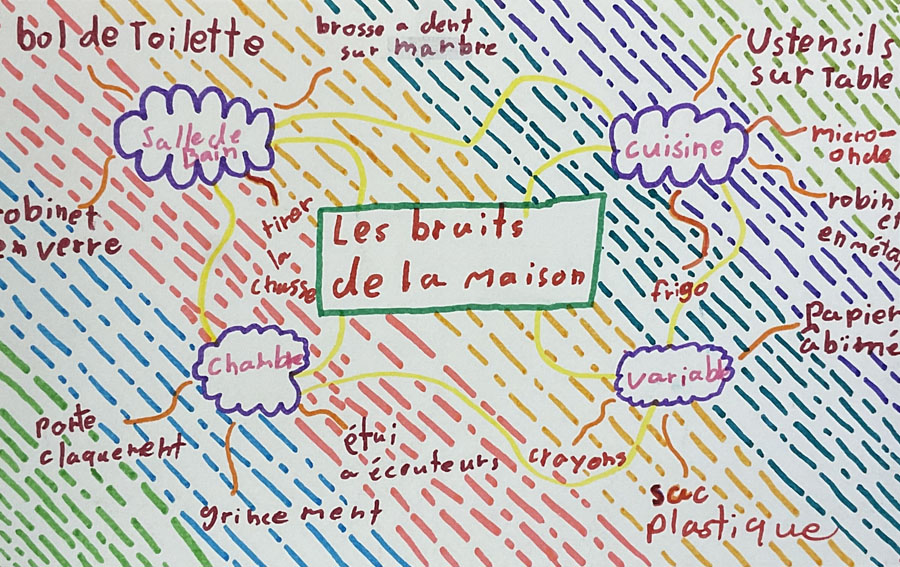 bol de Toilette
brosse a dent
sur marbre
Ustensils
sur Table
Salle de
Bain
cuisine
micro-
onde
robinet
en verre
tirer
la
chasse
Les bruits
de la maison
robin
et
en méta
frigo
Papier
abimé
chambre
variable
porte
claquement
étui
a écouteurs
crayons
grincement
sac
plastique